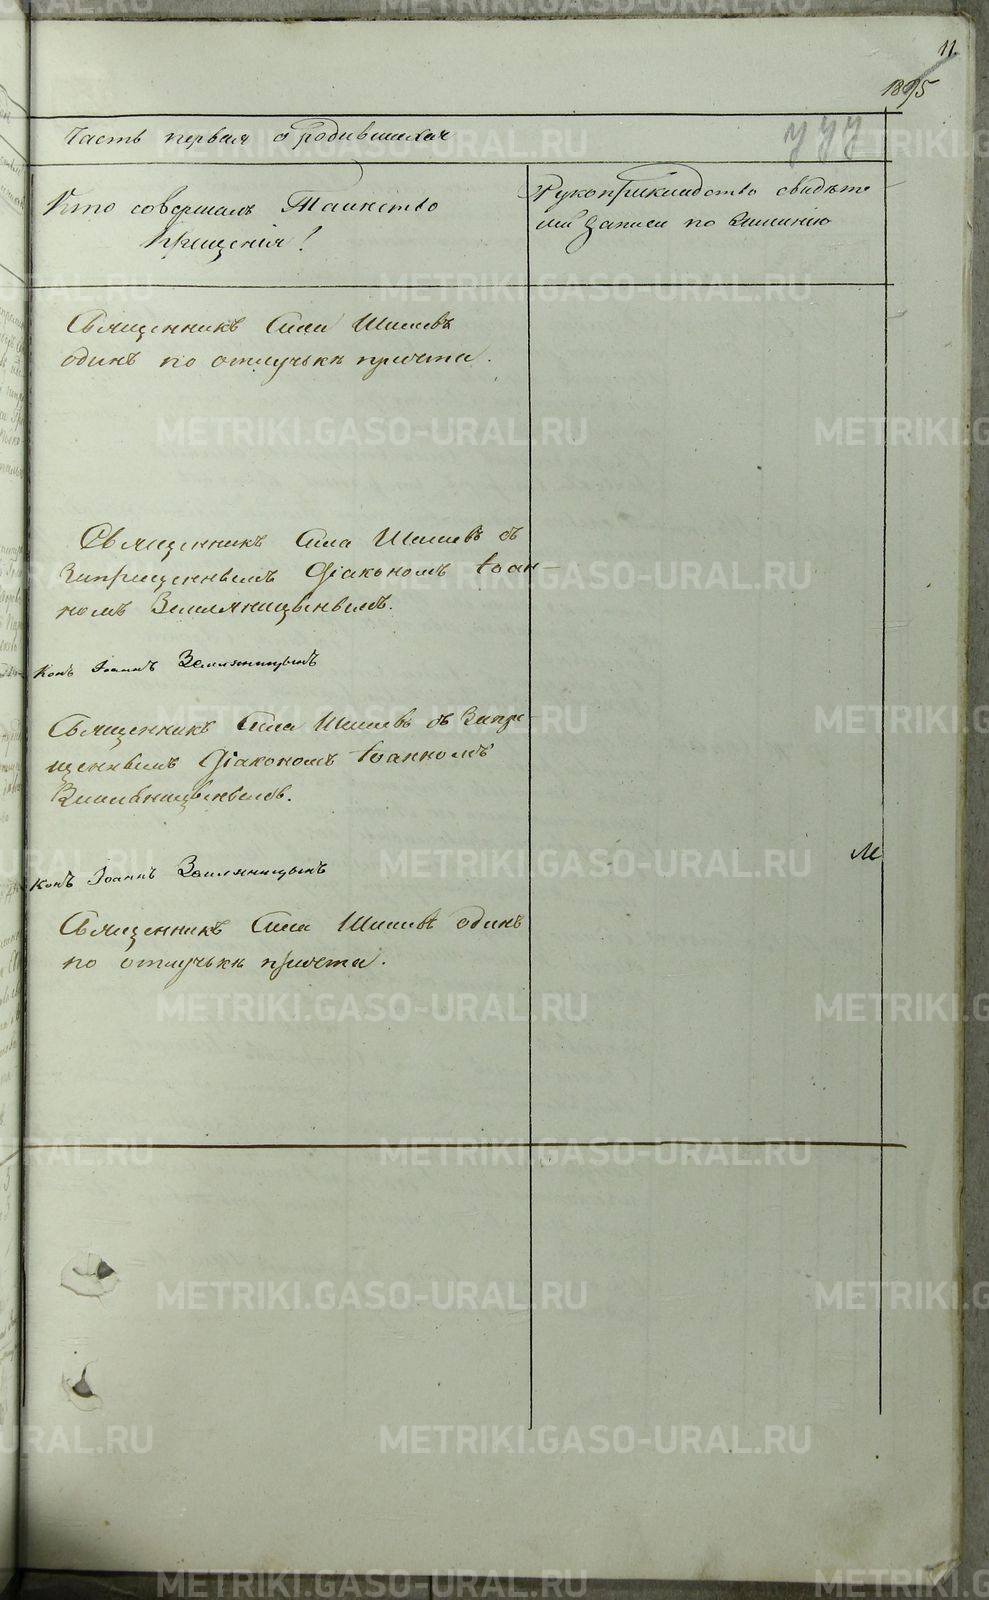 11.
1895
Часть первая о родившихся
777
Кто совершалъ Таинство
Крещенія?
Рукоприкладство свидѣте
лей записи по желанію
Священникъ Сила Шишевъ
одинъ по отлучькѣ причта.
Священникъ Сила Шишевъ съ
Запрещеннымъ Діакономъ Іоан-
номъ Земляницынымъ.
Іоаннъ Земляницынъ
Священникъ Сила Шишевъ съ Запре-
щеннымъ Діакономъ Іоанномъ
Земляницынымъ.
Іоаннъ Земляницынъ
М
Священникъ Сила Шишевъ одинъ
по отлучькѣ причта.
METRIKI.GASO-URAL.RU